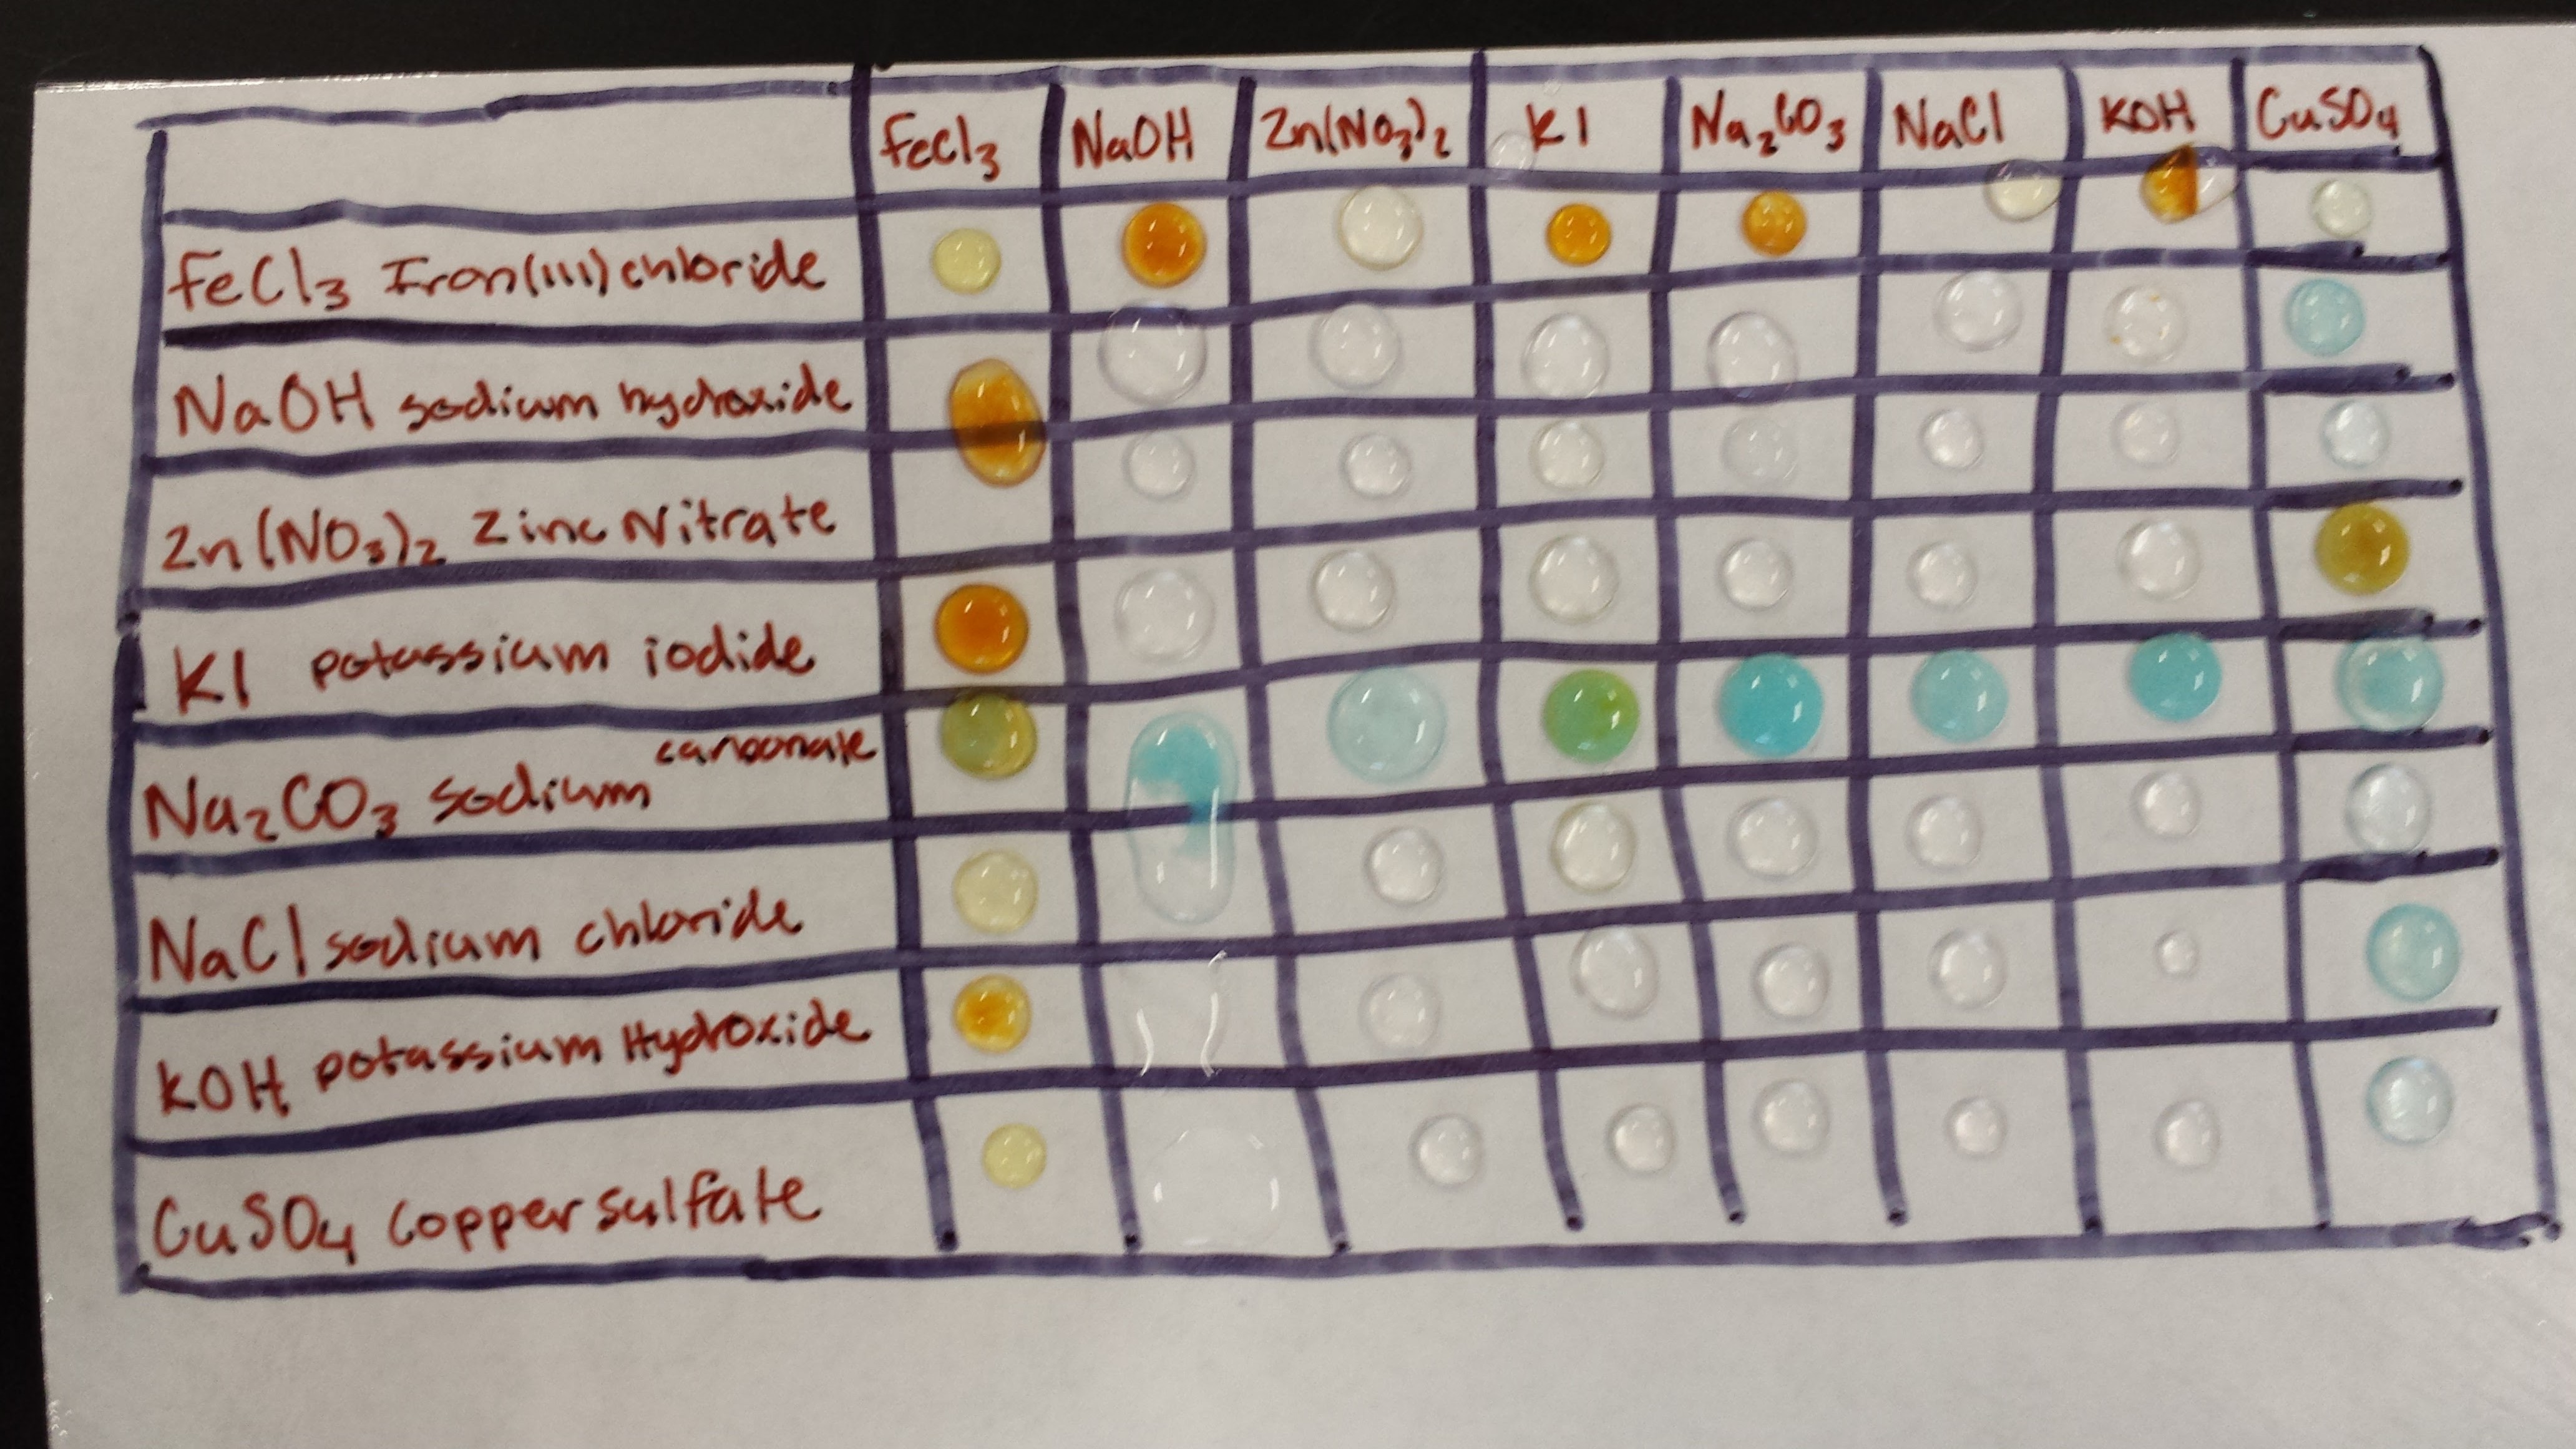 FeCl₃ NaOH Zn(NO₃)₂ KI Na₂CO₃ NaCl KOH CuSO₄
FeCl₃ Iron(III) chloride
NaOH sodium hydroxide
Zn(NO₃)₂ Zinc Nitrate
KI potassium iodide
Na₂CO₃ sodium carbonate
NaCl sodium chloride
KOH potassium Hydroxide
CuSO₄ copper sulfate